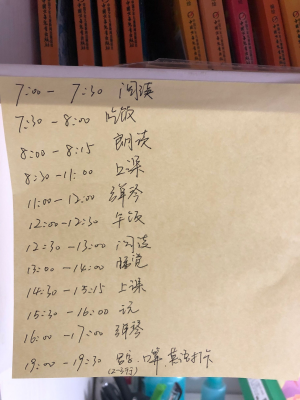 7:00 - 7:30 阅读
7:30 - 8:00 吃饭
8:00 - 8:15 朗读
8:30 - 11:00 上课
11:00 - 12:00 弹琴
12:00 - 12:30 午饭
12:30 - 13:00 阅读
13:00 - 14:00 睡觉
14:30 - 15:15 上课
15:30 - 16:00 玩
16:00 - 17:00 弹琴
19:00 - 19:30 口算、英语打卡